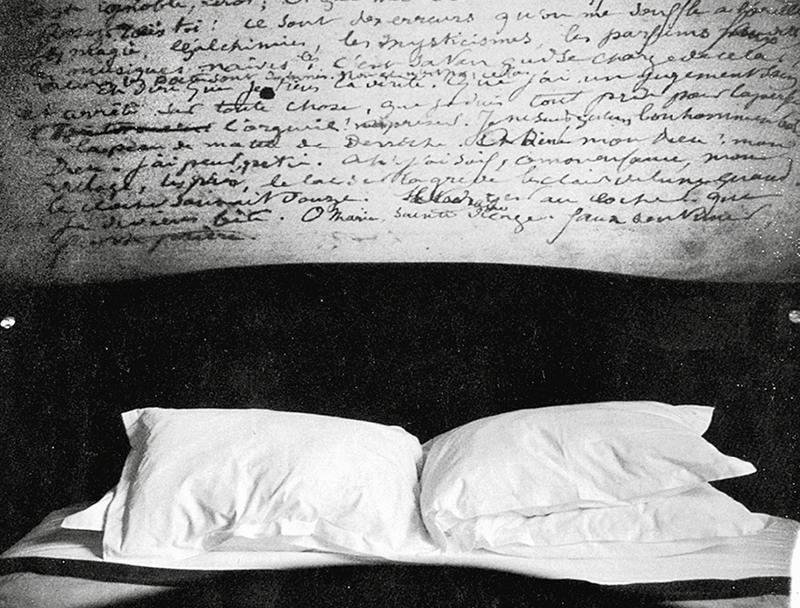 ignoble,
Tais toi! ce sont des erreurs qu'on me souffle à l'oreille
les magies, les alchimies, les mysticismes, les parfums faux
les musiques naïves. c'est Satan qui se charge de cela.
les poètes sont damnés. Non ce n'est pas cela.
Et dire que je tiens la vérité. Que j'ai un jugement sain
et arrêté sur toute chose, que je suis tout prêt pour la
l'orgueil! à présent. Je ne suis qu'un bonhomme en bois
la peau de ma tête se dessèche. Oh Dieu mon Dieu! mon
Dieu. J'ai peur, pitié. Ah! j'ai soif, ô mon enfance, mon
village, les prés, le lac sur la grève le clair de lune quand
le clocher sonnait douze. au clocher. que
je deviens bête. O Marie, Sainte Vierge, faux sentiment
prière.